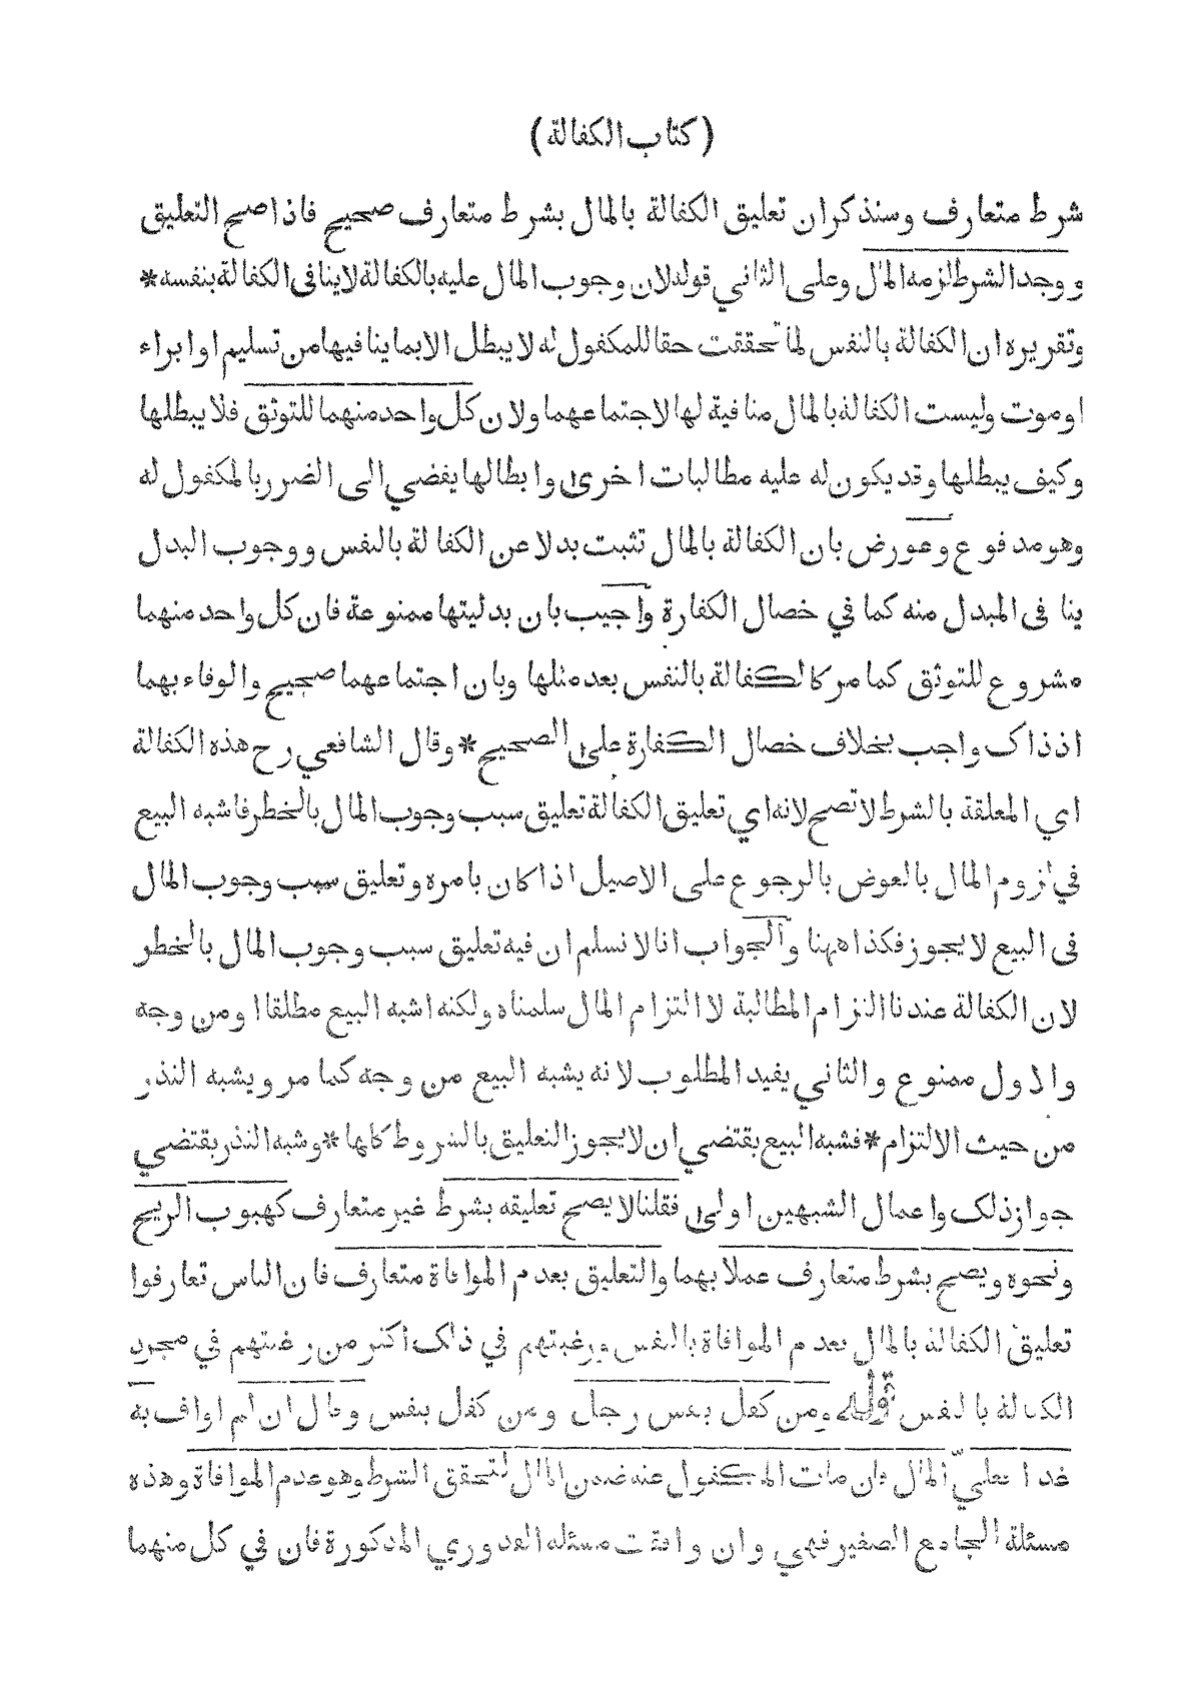 (كتاب الكفالة)
شرط متعارف وسنذكران تعليق الكفالة بالمال بشرط متعارف صحيح فاذا صح التعليق
ووجد الشرط لزمه المال وعلى الثاني قوله لان وجوب المال عليه بالكفالة لا ينافى الكفالة بنفسه *
وتقريره ان الكفالة بالنفس لما تحققت حقا للمكفول له لا يبطل الا بما ينافيها من تسليم او ابراء
او موت وليست الكفالة بالمال منافية لها لاجتماعهما ولان كل واحد منهما للتوثق فلا يبطلها
وكيف يبطلها وقد يكون له عليه مطالبات اخرى وابطالها يفضي الى الضرر بالمكفول له
وهو مدفوع وعورض بان الكفالة بالمال تثبت بدلا عن الكفالة بالنفس ووجوب البدل
ينا فى المبدل منه كما في خصال الكفارة واجيب بان بدليتها ممنوعة فان كل واحد منهما
مشروع للتوثق كما مر كالكفالة بالنفس بعد مثلها وبان اجتماعهما صحيح والوفاء بهما
اذ ذاك واجب بخلاف خصال الكفارة على الصحيح * وقال الشافعي رح هذه الكفالة
اي المعلقة بالشرط لا تصح لانه اي تعليق الكفالة تعليق سبب وجوب المال بالخطر فاشبه البيع
في لزوم المال بالعوض بالرجوع على الاصيل اذا كان بامره وتعليق سبب وجوب المال
فى البيع لا يجوز فكذا ههنا والجواب انا لا نسلم ان فيه تعليق سبب وجوب المال بالخطر
لان الكفالة عندنا التزام المطالبة لا التزام المال سلمناه ولكنه اشبه البيع مطلقا او من وجه
والاول ممنوع والثاني يفيد المطلوب لانه يشبه البيع من وجه كما مر ويشبه النذر
من حيث الالتزام * فشبه البيع يقتضي ان لا يجوز التعليق بالشروط كلها * وشبه النذر يقتضي
جواز ذلك واعمال الشبهين اولى فقلنا لا يصح تعليقه بشرط غير متعارف كهبوب الريح
ونحوه ويصح بشرط متعارف عملا بهما والتعليق بعدم الموافاة متعارف فان الناس تعارفوا
تعليق الكفالة بالمال بعدم الموافاة بالنفس ورغبتهم في ذلك اكثر من رغبتهم في مجرد
الكفالة بالنفس قوله ومن كفل بنفس رجل ومن كفل بنفس وقال ان لم اواف به
غدا فعليّ المال فان مات المكفول عنه ضمن المال لتحقق الشرط وهو عدم الموافاة وهذه
مسئلة الجامع الصغير فهي وان وافقت مسئله القدوري المذكورة فان في كل منهما